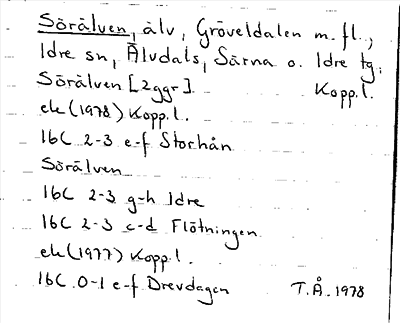 Sörälven, älv, Gröveldalen m.fl.,
Idre sn, Älvdals, Särna o. Idre tg.
Sörälven [2ggr]. Kopp.l.
ek (1978) Kopp.l.
16C 2-3 e-f Storhån
Sörälven
16C 2-3 g-h Idre
16C 2-3 c-d Flötningen
ek (1977) Kopp.l.
16C 0-1 e-f Drevdagen T.Å. 1978